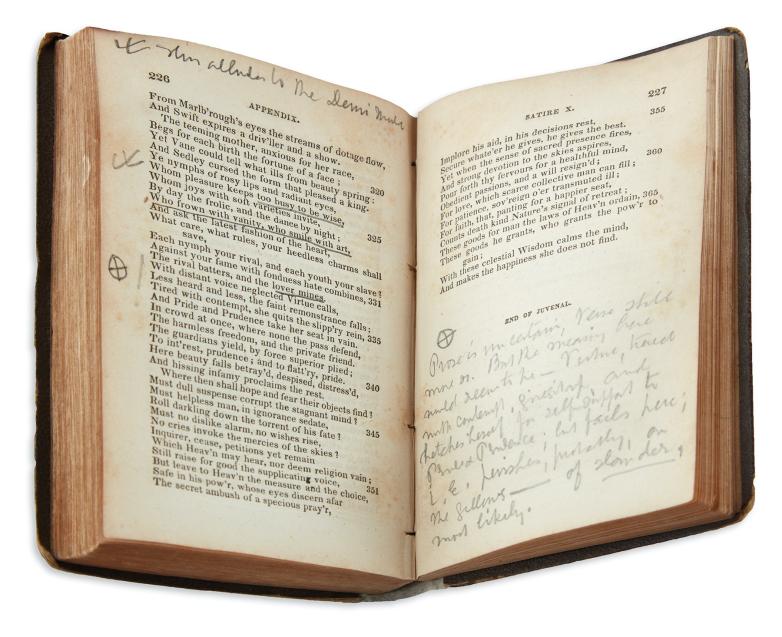 This alludes to the Demi Monde
226
APPENDIX.
From Marlb'rough's eyes the streams of dotage flow,
And Swift expires a driv'ller and a show.
The teeming mother, anxious for her race,
Begs for each birth the fortune of a face; 320
Yet Vane could tell what ills from beauty spring:
And Sedley cursed the form that pleased a king.
Ye nymphs of rosy lips and radiant eyes,
Whom pleasure keeps too busy to be wise,
Whom joys with soft varieties invite, 325
By day the frolic, and the dance by night;
Who frown with vanity, who smile with art,
And ask the latest fashion of the heart,
What care, what rules, your heedless charms shall
save,
Each nymph your rival, and each youth your slave?
Against your fame with fondness hate combines, 331
The rival batters, and the lover mines.
With distant voice neglected Virtue calls,
Less heard and less, the faint remonstrance falls;
Tired with contempt, she quits the slipp'ry rein, 335
And Pride and Prudence take her seat in vain.
In crowd at once, where none the pass defend,
The harmless freedom, and the private friend.
The guardians yield, by force superior plied;
To int'rest, prudence; and to flatt'ry, pride. 340
Here beauty falls betray'd, despised, distress'd,
And hissing infamy proclaims the rest.
Where then shall hope and fear their objects find?
Must dull suspense corrupt the stagnant mind?
Must helpless man, in ignorance sedate, 345
Roll darkling down the torrent of his fate?
Must no dislike alarm, no wishes rise,
No cries invoke the mercies of the skies?
Inquirer, cease, petitions yet remain
Which Heav'n may hear, nor deem religion vain;
Still raise for good the supplicating voice, 351
But leave to Heav'n the measure and the choice,
Safe in his pow'r, whose eyes discern afar
The secret ambush of a specious pray'r,
SATIRE X.
227
Implore his aid, in his decisions rest, 355
Secure whate'er he gives, he gives the best.
Yet when the sense of sacred presence fires,
And strong devotion to the skies aspires,
Pour forth thy fervours for a healthful mind,
Obedient passions, and a will resign'd; 360
For love, which scarce collective man can fill;
For patience, sov'reign o'er transmuted ill;
For faith, that, panting for a happier seat,
Counts death kind Nature's signal of retreat; 365
These goods for man the laws of Heav'n ordain,
These goods he grants, who grants the pow'r to
gain;
With these celestial Wisdom calms the mind,
And makes the happiness she does not find.
END OF JUVENAL.
Prose is uncertain, Verse still
more so. But the meaning here
would seem to be — Virtue, treated
with contempt, gives it up, and
betakes herself for self-support to
Pride & Prudence; but fails here;
I. E. perishes, probably, on
the gallows — of slander,
most likely.